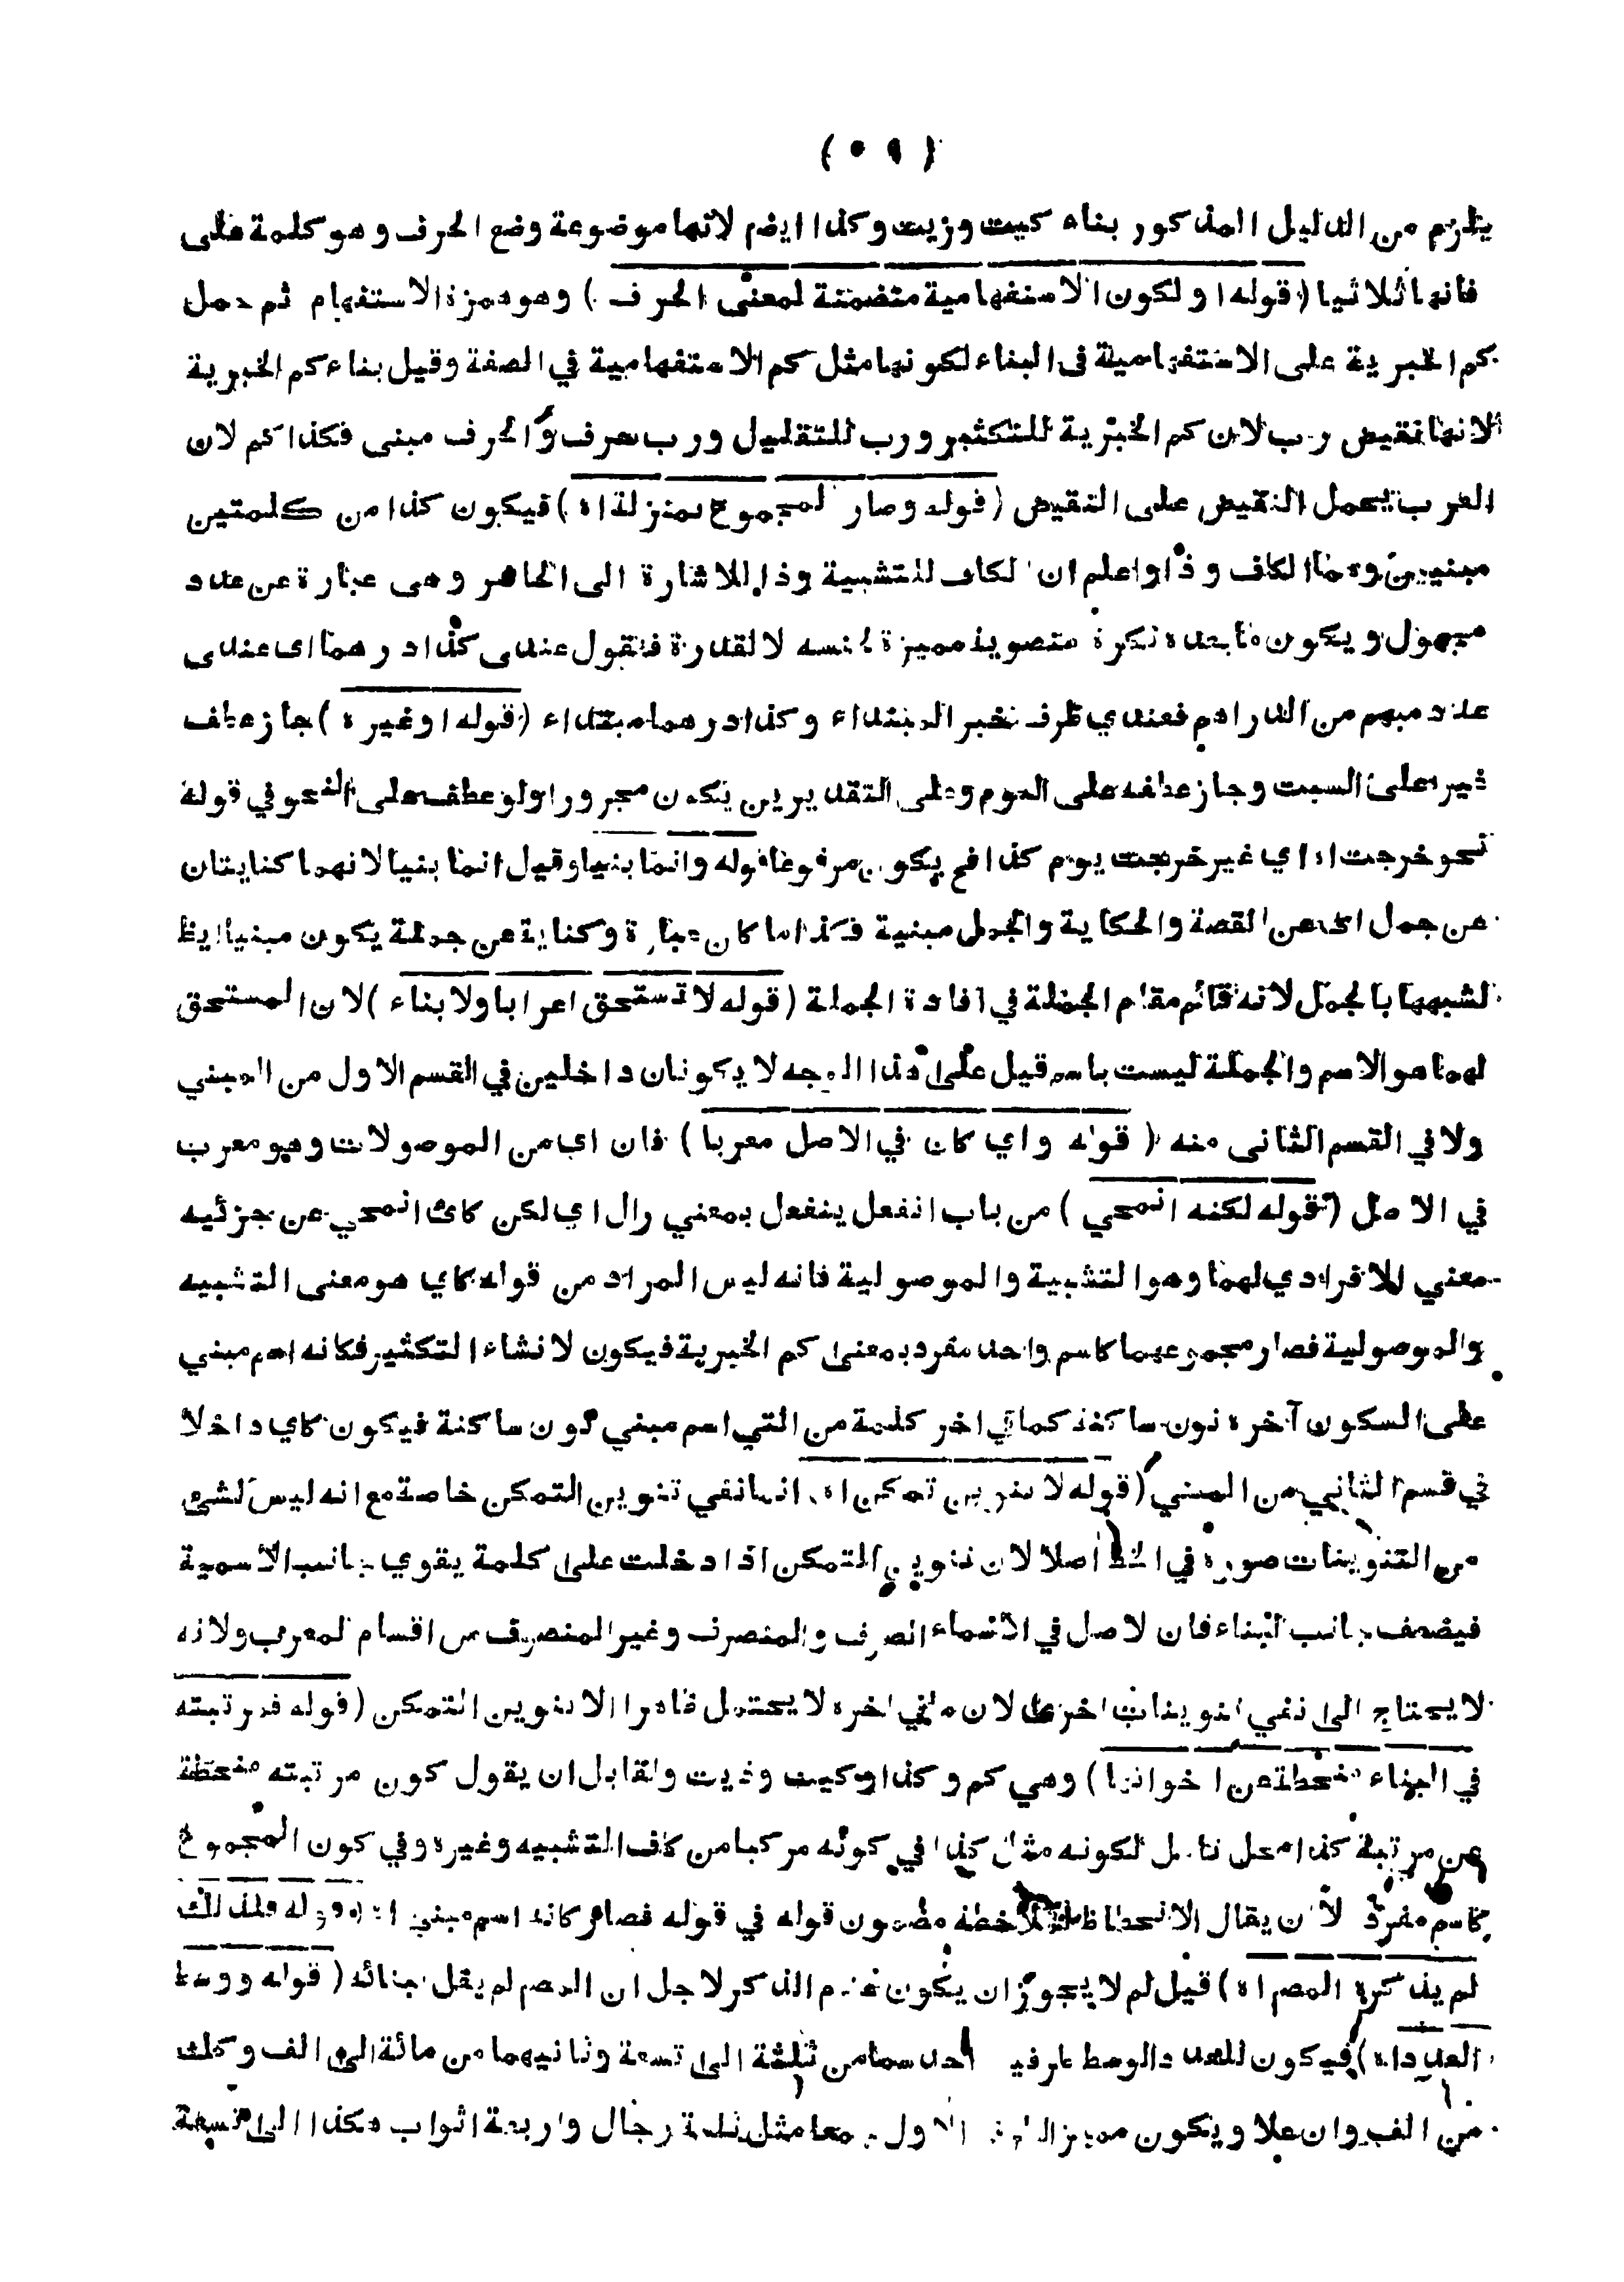 ( ٥٩ )
يلزم من الدليل المذكور بناء كيت وزيت وكذا ايضم لانها موضوعة وضع الحرف وهو كلمة على
فانها ثلاثيا (قوله او لكون الاستفهامية متضمنة لمعنى الحرف) وهو همزة الاستفهام ثم حمل
كم الخبرية على الاستفهامية فى البناء لكونها مثل كم الاستفهامية في الصفة وقيل بناء كم الخبرية
لانها نقيض رب لان كم الخبرية للتكثير ورب للتقليل ورب حرف والحرف مبنى فكذا كم لان
العرب يحمل النقيض على النقيض (قوله وصار المجموع بمنزلة اه) فيكون كذا من كلمتين
مبنيين وهما الكاف وذا واعلم ان الكاف للتشبية وذا للاشارة الى الحاضر وهى عبارة عن عدد
مجهول ويكون ما بعده نكرة منصوبة مميزة لجنسه لا لقدرة فتقول عندى كذا درهما اى عندى
عدد مبهم من الدراهم فعندي ظرف خبر المبتداء وكذا درهما مبتداء (قوله او غيره) جاز عطف
غير على السبت وجاز عطفه على اليوم وعلى التقديرين يكون مجرورا ولو عطف على النحو في قوله
نحو خرجت اه اي غير خرجت يوم كذا فح يكون مرفوعا قوله وانما بنيا وقيل انما بنيا لانهما كنايتان
عن جمل اى عن القصة والحكاية والجمل مبنية فكذا ما كان عبارة وكناية عن جملة يكون مبنيا ايظ
لشبهها بالجمل لانه قائم مقام الجملة في افادة الجملة (قوله لا تستحق اعرابا ولا بناء) لان المستحق
لهما هو الاسم والجملة ليست باسم قيل على هذا الوجه لا يكونان داخلين في القسم الاول من المبني
ولا في القسم الثانى منه (قوله واي كان في الاصل معربا) فان اى من الموصولات وهو معرب
في الاصل (قوله لكنه انمحي) من باب انفعل ينفعل بمعني زال اي لكن كاى انمحي عن جزئيه
معني للافرادي لهما وهو التشبية والموصولية فانه ليس المراد من قوله كاي هو معنى التشبيه
والموصولية فصار مجموعهما كاسم واحد مفرد بمعنى كم الخبرية فيكون لانشاء التكثير فكانه اسم مبني
على السكون آخره نون ساكنة كما في اخر كلمة من التي اسم مبني نون ساكنة فيكون كاي داخلا
في قسم الثاني من المبني (قوله لا تنوين تمكن اه) انما نفي تنوين التمكن خاصة مع انه ليس لشئ
من التنوينات صورة في الخط اصلا لان تنوين التمكن اذا دخلت على كلمة يقوي جانب الاسمية
فيضعف جانب البناء فان لاصل في الاسماء الصرف والمنصرف وغير المنصرف من اقسام المعرب ولانه
لا يحتاج الى نفي تنوينات اخر لان في اخره لا يحتمل ظاهرا الا تنوين التمكن (قوله فمرتبته
في البناء منحطة عن اخواتها) وهي كم وكذا وكيت وذيت والقابل ان يقول كون مرتبته منحطة
عن مرتبة كذا محل تامل لكونه مثل كذا في كونه مركبا من كاف التشبيه وغيره وفي كون المجموع
كاسم مفرد لان يقال الانحطاط لملاحظة مضمون قوله في قوله فصار كانه اسم مبني اه (قوله فلذلك
لم يذكره المصم اه) قيل لم لا يجوز ان يكون عدم الذكر لاجل ان المصم لم يقل ببنائه (قوله ووسط
العدد اه) فيكون للعدد الوسط احدهما من ثلثة الى تسعة وثانيهما من مائة الى الف وكك
من الف وان علا ويكون مميز الاول جمعا مثل ثلثة رجال واربعة اثواب هكذا الى تسعة